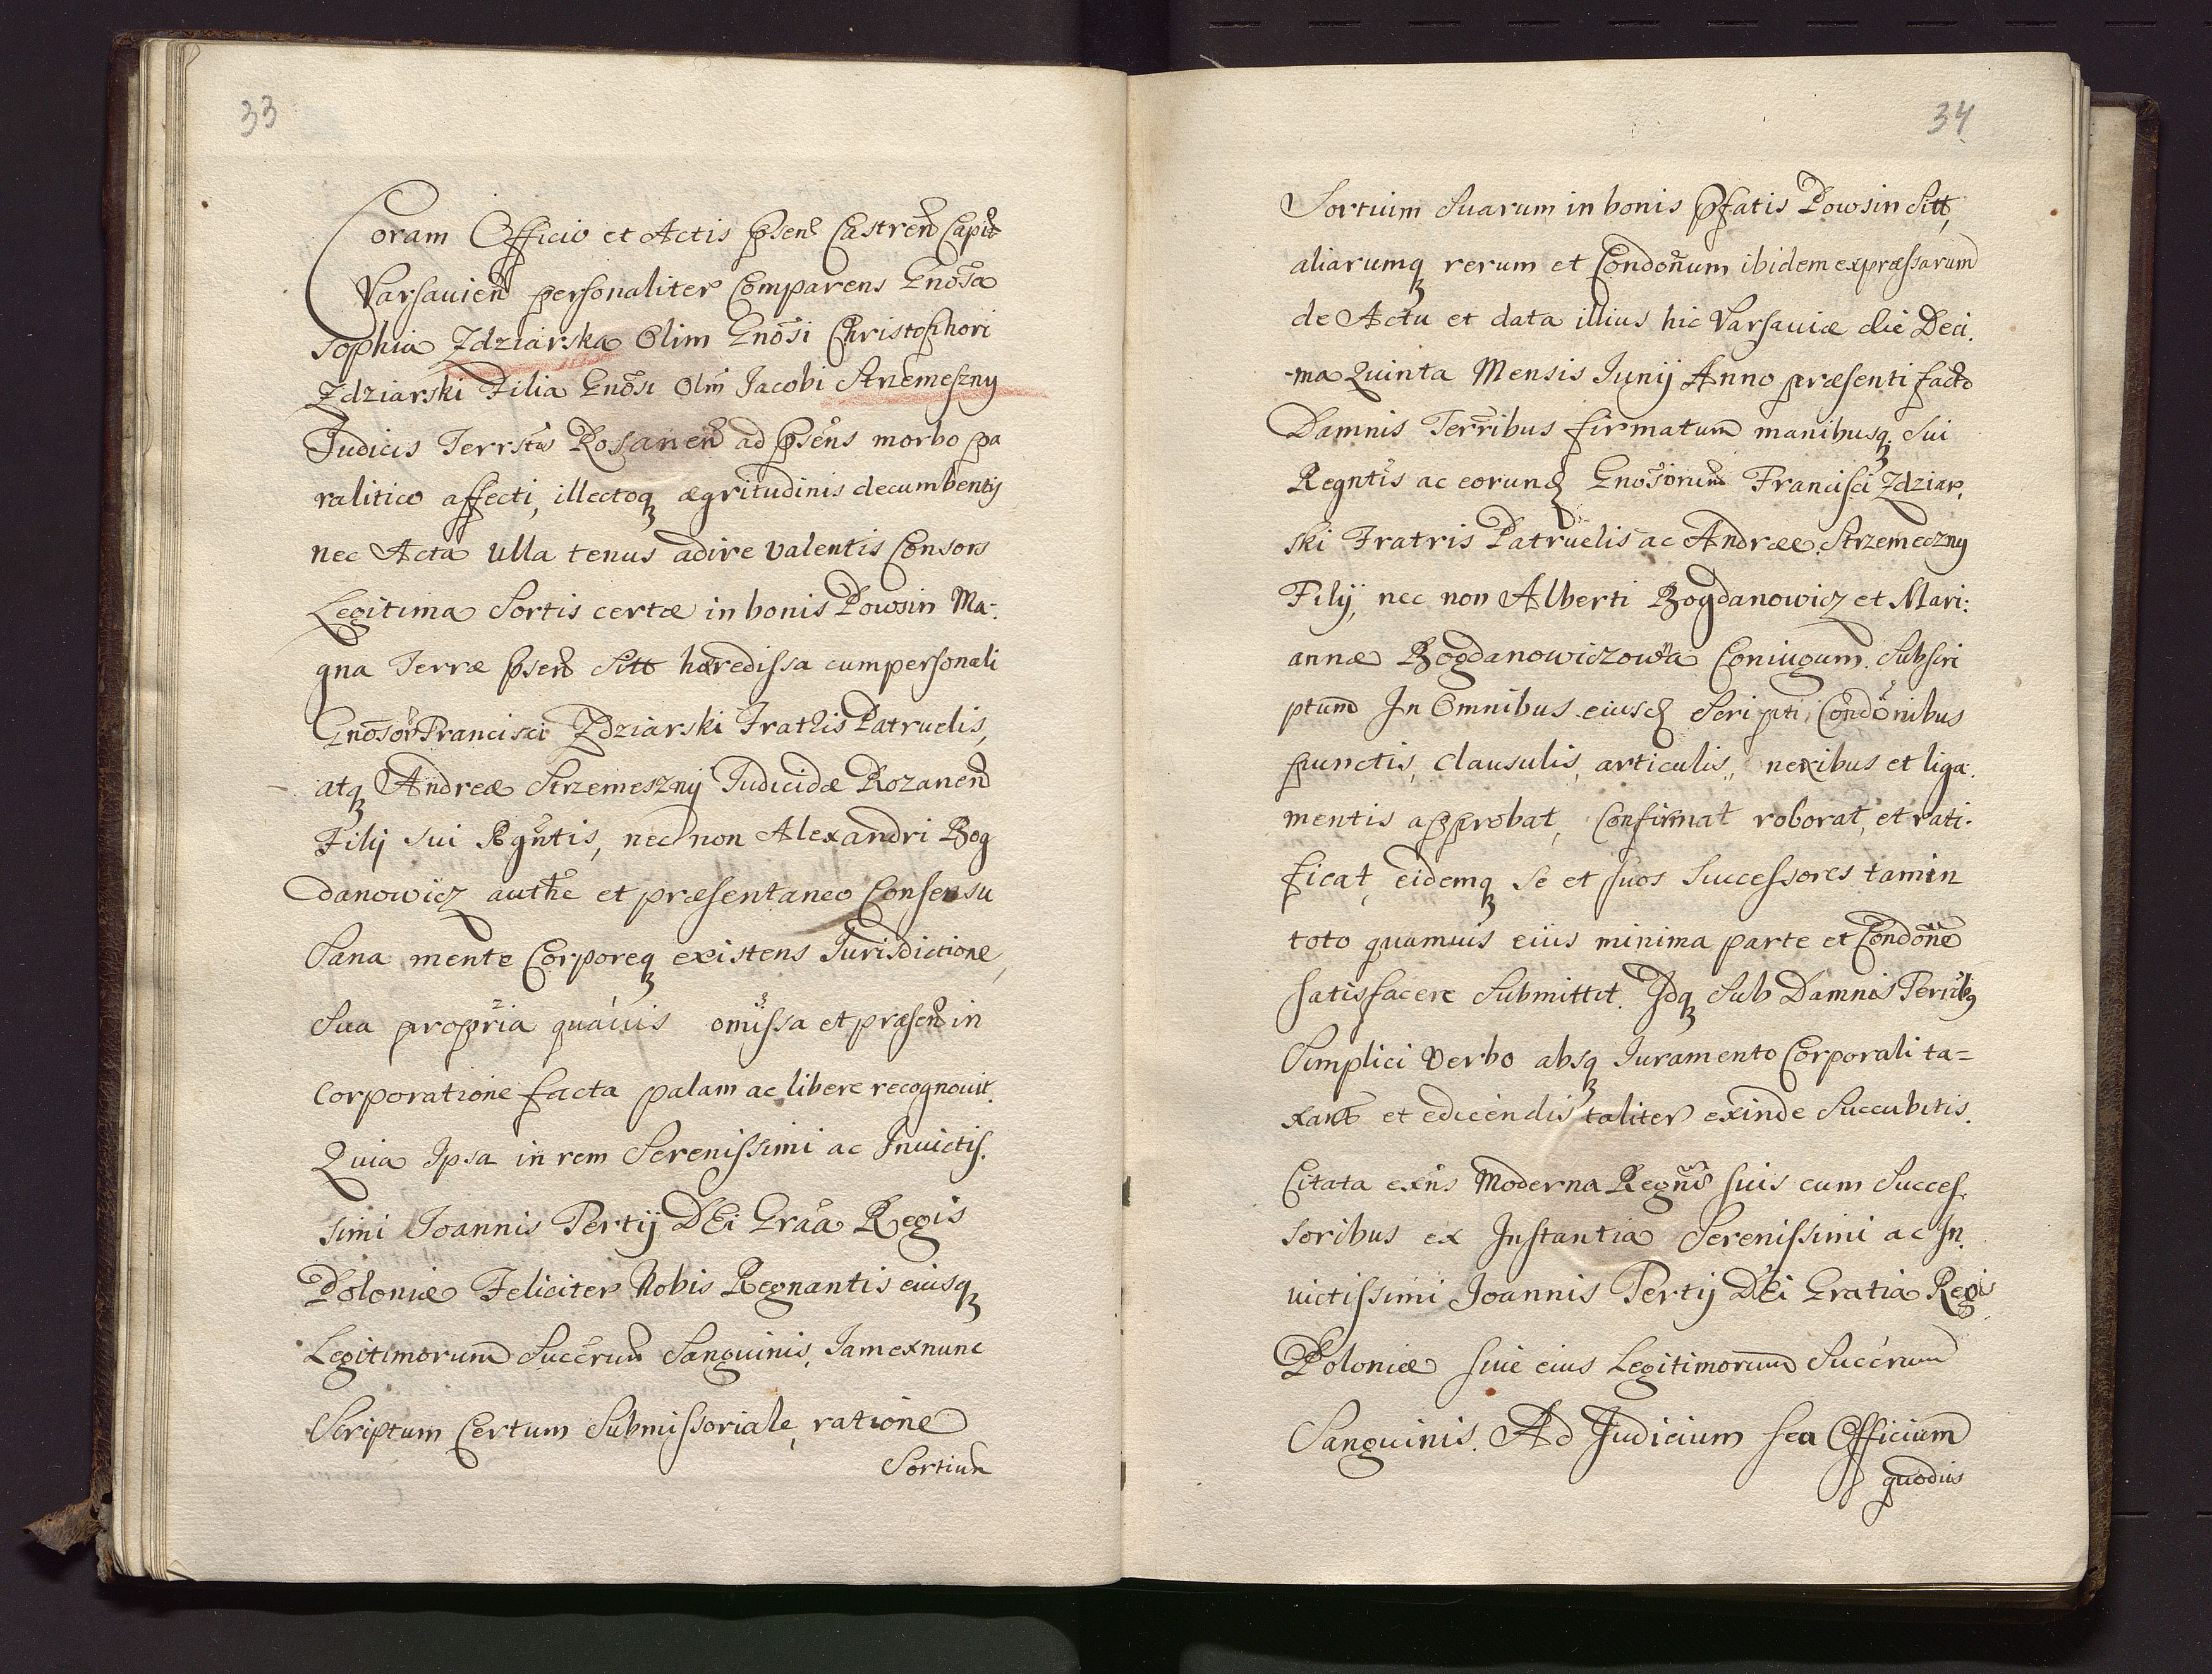 33
Coram Officio et Actis p̃sen͂ Castren͂ Capit͂
Varsavien͂ personaliter Comparens Gnõsa
Sophia Zdziarska Olim Gnõsi Christophori
Zdziarski Filia Gnõsi Olm̃ Jacobi Strzemeszny
Judicis Terrstis Rosanen͂ ad p̃sẽns morbo pa
ralitico affecti, illectoq ægritudinis decumbentis
nec Acta ulla tenus adire valentis Consors
Legitima Sortis certæ in bonis Powsin Ma-
gna Terræ p̃sen͂ Sitt hæredissa cum personali
Gnõsor͂ Francisci Zdziarski Fratris Patruelis,
atq Andreæ Strzemeszny Judicidæ Rozanen͂
Filij sui Rgñtis, nec non Alexandri Bog
danowicz authc̃ et præsentaneo Consensu
Sana mente Corporeq existens Jurisdictione,
Sua prop̃ria quavis omissa et præsen͂ in
corporatione facta palam ac libere recognovit.
Quia Ipsa in rem Serenissimi ac Invictis.
simi Joannis Tertij DEi Graã Regis
Poloniæ Feliciter Nobis Regnantis eiusq
Legitimorum Succ̃rum Sanguinis, Jam exnunc
Scriptum Certum Submissoriale, ratione
Sortium
34
Sortium Suarum in bonis p̃fatis Powsin Sitt,
aliarumq rerum et Condoñum ibidem expræssarum
de Actu et data illius hic Varsaviæ die Deci.
-ma Quinta Mensis Junij Anno præsenti facto
Damnis Terr̃ibus firmatum manibusq Sui
Regntĩs ac eorund Gnosiorum Francisci Zdziar,
ski Fratris Patruelis ac Andreæ Strzemeczny
Filij, nec non Alberti Bogdanowicz et Mari:
annæ Bogdanowiczowa Coniugum. Subscri
ptum In Omnibus eiusd Scripti, Condõnibus
punctis, clausulis, articulis, nexibus et liga.
mentis approbat, Confirmat roborat, et rati.
ficat, eidemq Se et suos Successores tam in
toto quamvis eius minima parte et Condoñe
satisfacere Submittit. Idq Sub Damnis Terrib9
Simplici Verbo absq Juramento Corporali ta=
xant͂ et edicendis taliter exinde Succubitis.
Citata exñs Moderna Regñs suis cum Succes
soribus ex Instantia Serenissimi ac In.
victissimi Joannis Tertij DEi Gratia Regis
Poloniæ sive eius Legitimorum Succ̃rum
Sanguinis. Ad Judicium seu Officium
quodvis